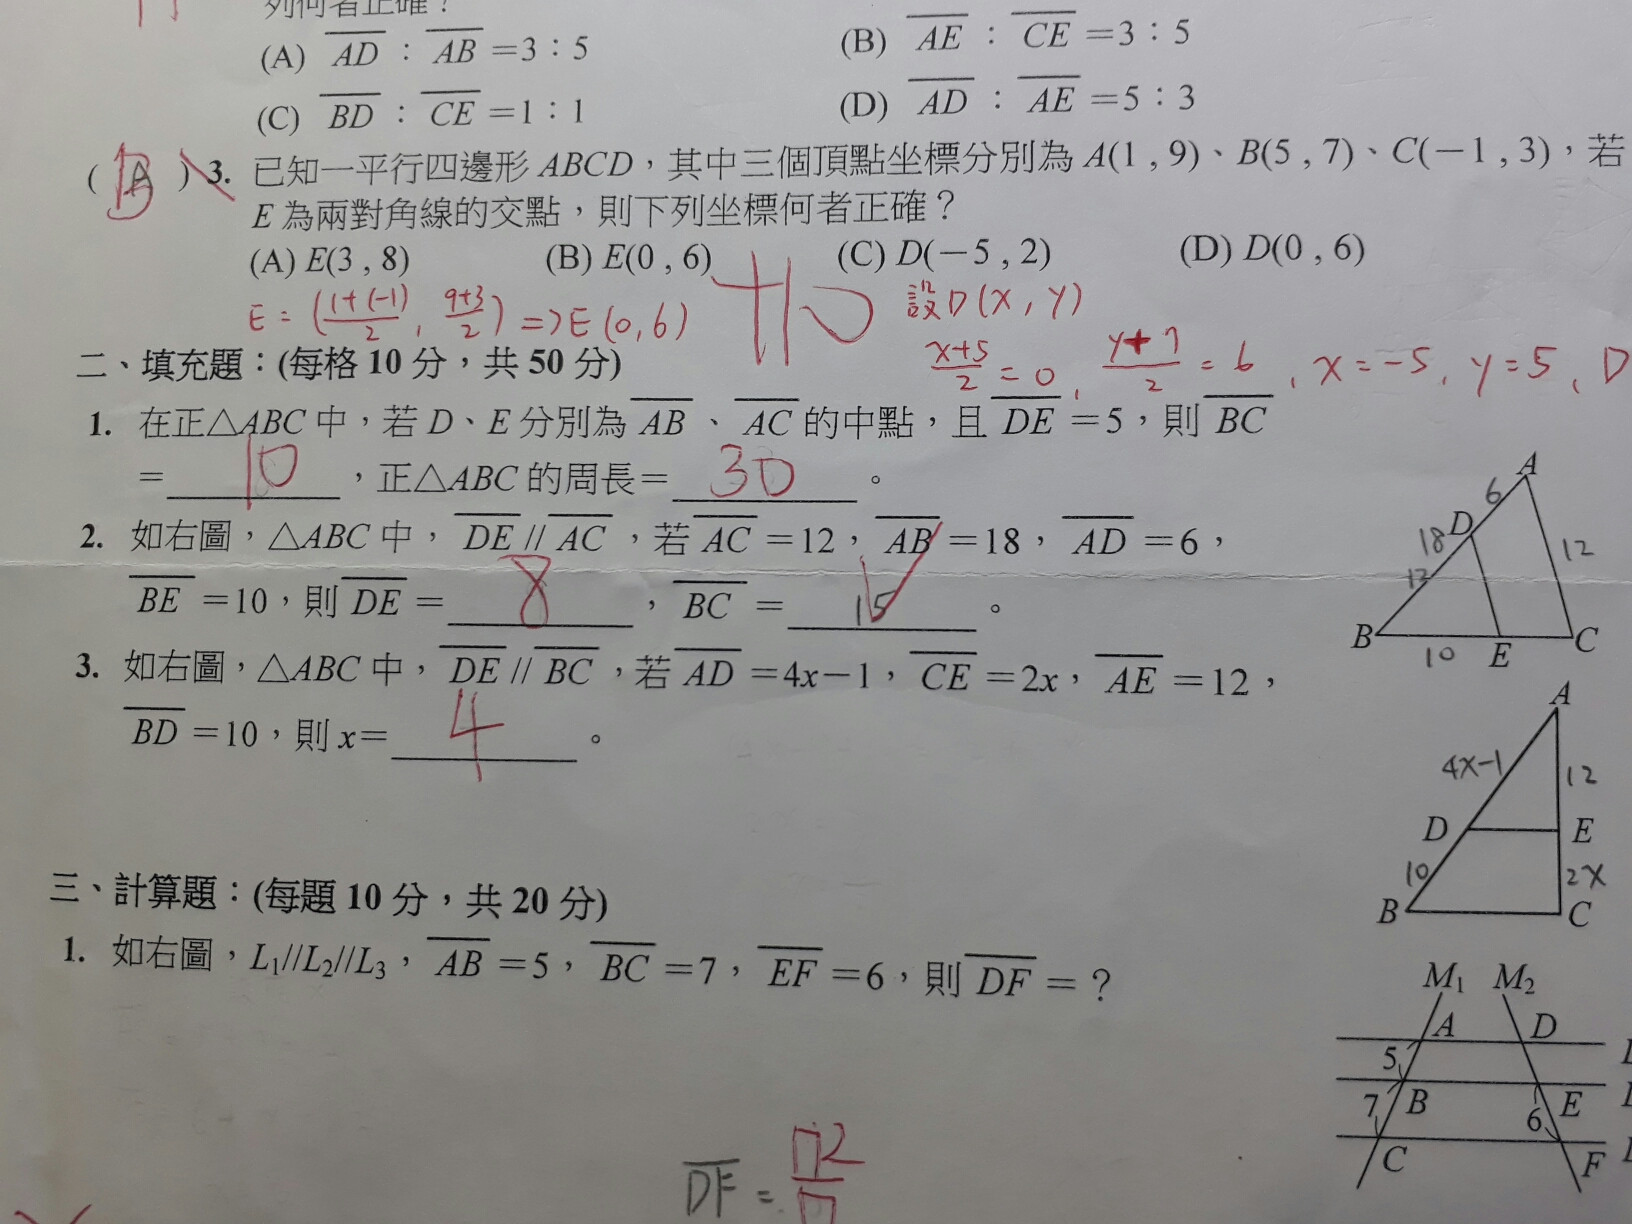 列何者正確？
(A) AD：AB＝3：5 (B) AE：CE＝3：5
(C) BD：CE＝1：1 (D) AD：AE＝5：3
( B ) 3. 已知一平行四邊形 ABCD，其中三個頂點坐標分別為 A(1 , 9)、B(5 , 7)、C(－1 , 3)，若
E 為兩對角線的交點，則下列坐標何者正確？
(A) E(3 , 8) (B) E(0 , 6) (C) D(－5 , 2) (D) D(0 , 6)
E = (1+(-1)/2 , 9+3/2) => E (0,6) 設D(x , y)
x+5/2 = 0 , y+7/2 = 6 , x=-5 , y=5 、D
二、填充題：(每格 10 分，共 50 分)
1. 在正△ABC 中，若 D、E 分別為 AB、AC 的中點，且 DE＝5，則 BC
＝ 10 ，正△ABC 的周長＝ 30 。
2. 如右圖，△ABC 中，DE // AC，若 AC＝12，AB＝18，AD＝6，
BE＝10，則 DE＝ 8 ，BC＝ 15 。
A
6
D
18
12
12
B
10
E
C
3. 如右圖，△ABC 中，DE // BC，若 AD＝4x－1，CE＝2x，AE＝12，
BD＝10，則 x＝ 4 。
A
4x-1
12
D
E
10
2x
B
C
三、計算題：(每題 10 分，共 20 分)
1. 如右圖，L1//L2//L3，AB＝5，BC＝7，EF＝6，則 DF＝？
M1 M2
A
D
5
B
E
7
6
C
F
DF = 72/7